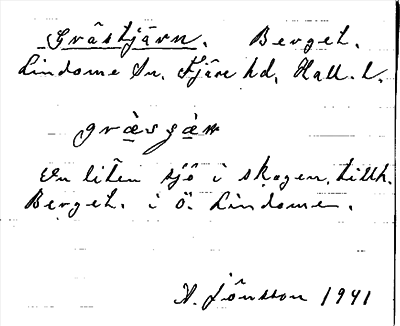 Gråstjärn. Berget.
Lindome Sn. Fjäre hd. Hall. l.
En liten sjö i skogen, tillh.
Berget. i Ö. Lindome.
A. Jönsson 1941